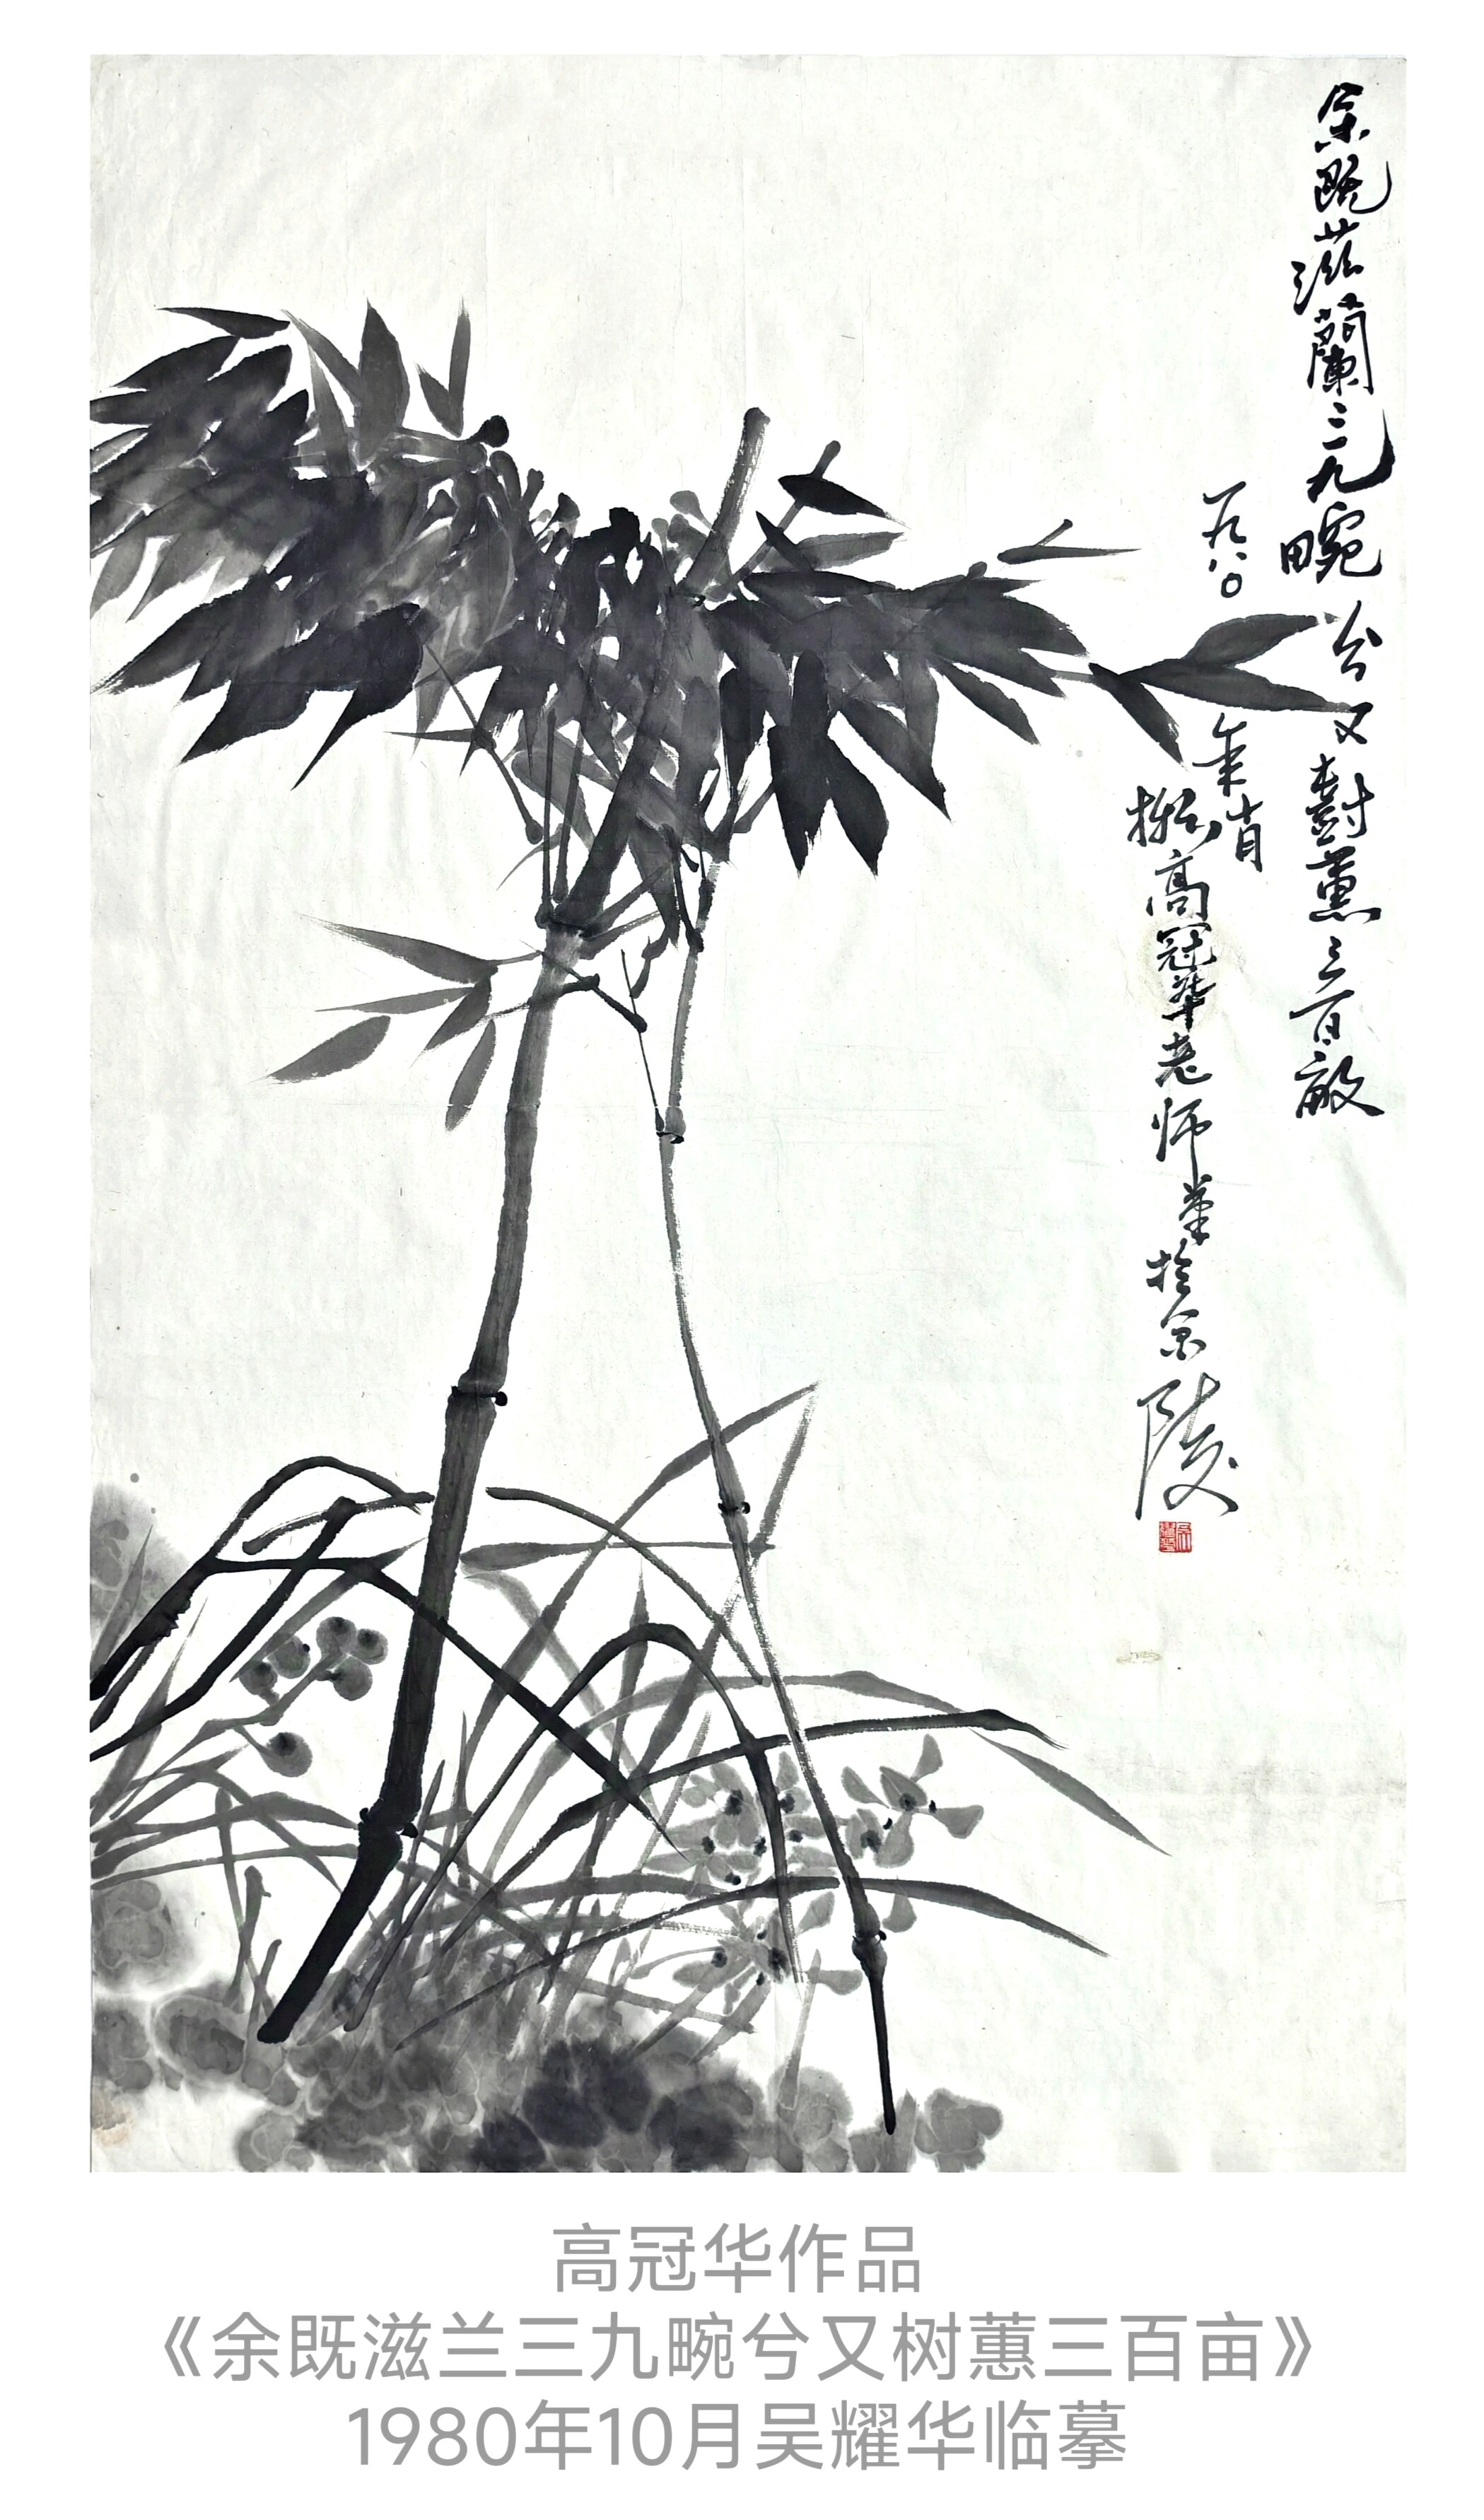 余既滋蘭三九畹兮又樹蕙三百畝
一九八〇年十月
擬高冠華老师笔於金陵
高冠华作品
《余既滋兰三九畹兮又树蕙三百亩》
1980年10月吴耀华临摹